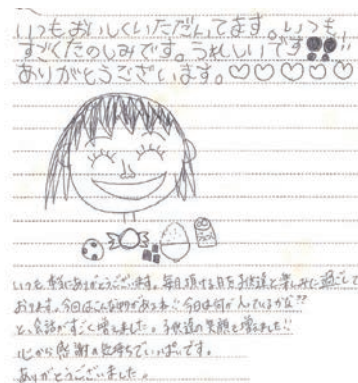 いつもおいしくいただいてます。いつも
すごくたのしみです。うれしいです!!
ありがとうございます。♡♡♡♡♡
いつも本当にありがとうございます。毎日頂ける日を子供達と楽しみに過ごして
おります。今日はこんな物があるネ!!今日は何が入っているかな??
と、会話がすごく増えました。子供達の笑顔も増えました!!
心から感謝の気持ちでいっぱいです。
ありがとうございました。